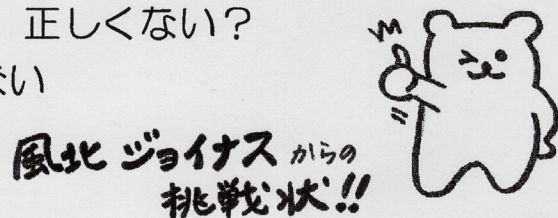 正しくない？
ない
風北 ジョイナス からの
挑戦状!!